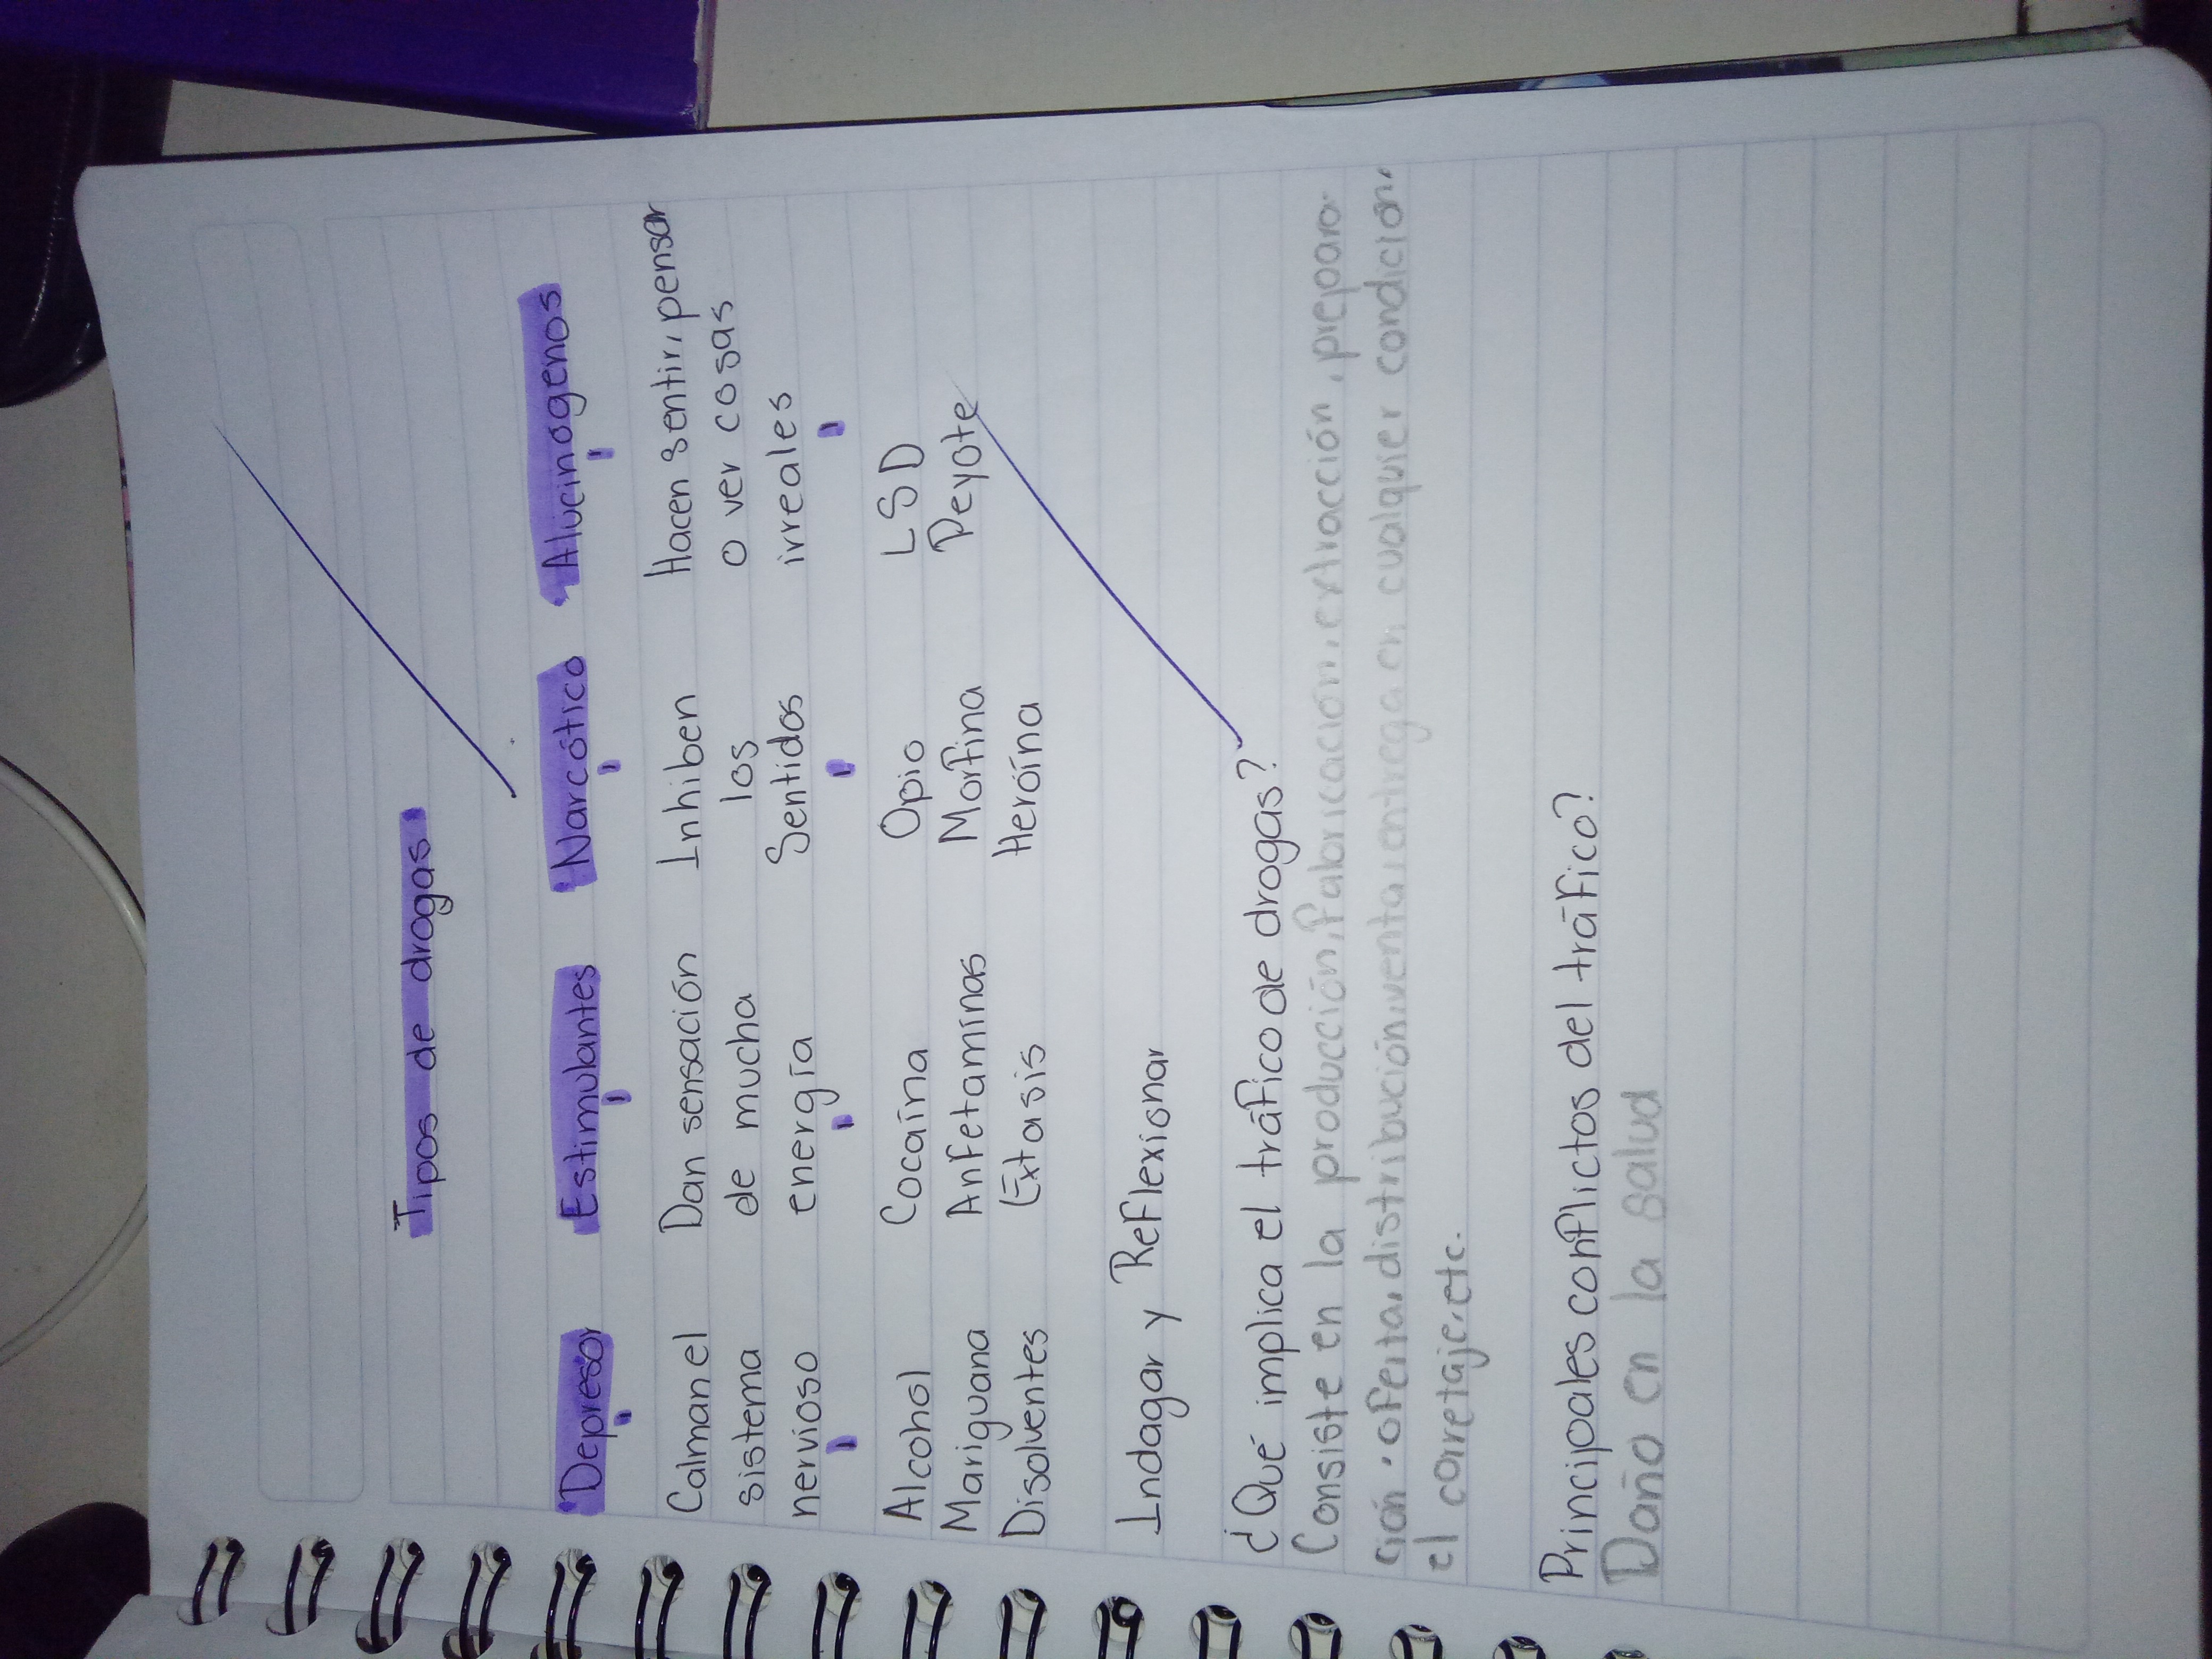 Tipos de drogas
Depresor Estimulantes Narcótico Alucinogenos
Calman el Dan sensación Inhiben Hacen sentir, pensar
sistema de mucha los o ver cosas
nervioso energía Sentidos irreales
Alcohol Cocaína Opio LSD
Mariguana Anfetaminas Morfina Peyote
Disolventes Éxtasis Heroína
Indagar y Reflexionar
¿Qué implica el tráfico de drogas?
Consiste en la producción, fabricación, extracción, prepara-
ción, oferta, distribución, venta, entrega en cualquier condición,
el corretaje, etc.
Principales conflictos del tráfico?
Daño en la salud